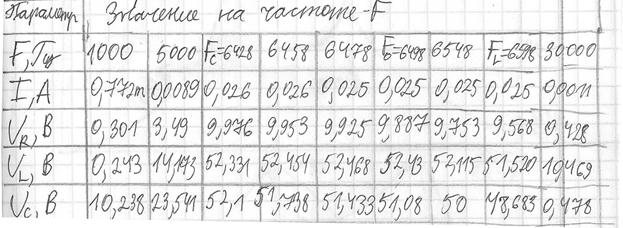 Параметр Значение на частоте-F
F, Гц 1000 5000 Fc=6428 6458 6478 F0=6498 6548 FL=6598 30000
I, A 0,772m 0,0089 0,026 0,026 0,025 0,025 0,025 0,025 0,0011
UR, В 0,301 3,49 9,976 9,953 9,925 9,887 9,753 9,568 0,428
UL, В 0,243 14,173 52,331 52,454 52,468 52,43 52,115 51,520 10,469
Uc, В 10,238 23,541 52,1 51,738 51,433 51,08 50 48,683 0,478